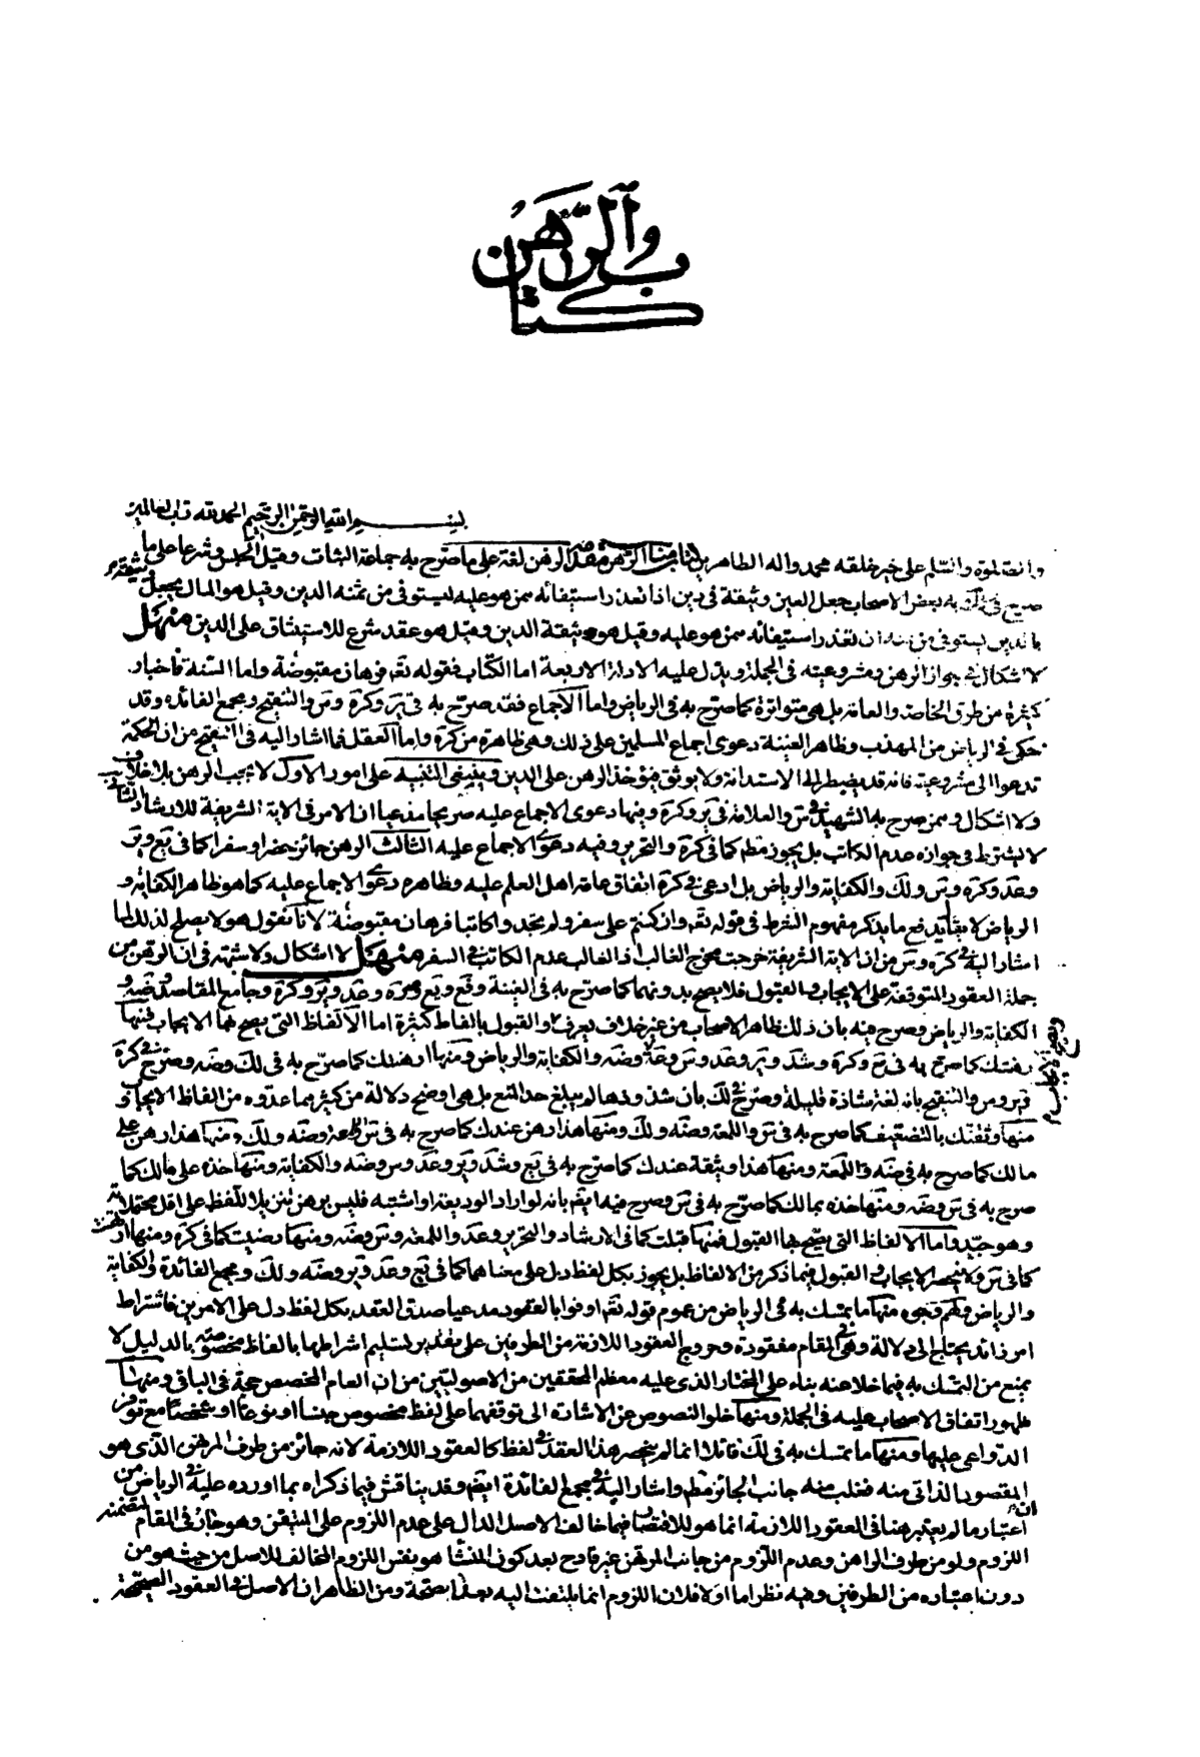 كتاب الرهن
بسم الله الرحمن الرحيم الحمد لله رب العالمين
والصلوة والسلام على خير خلقه محمد واله الطاهرين الرهن لغة على ما صرح به جماعة الثبات وقيل الحبس وشرعا على ما
صرح به بعض الاصحاب جعل العين وثيقة في دين اذا تعذر استيفائه ممن هو عليه ليستوفى من ثمنه الدين وقيل هو المال يجعل وثيقة
بالدين ليستوفى من ثمنه ان تعذر استيفائه ممن هو عليه وقيل هو وثيقة الدين وقيل هو عقد شرع للاستيثاق على الدين منهل
لا اشكال في جواز الرهن ومشروعيته في الجملة ويدل عليه الادلة الاربعة اما الكتاب فقوله تعم فرهان مقبوضة واما السنة فاخبار
كثيرة من طرق الخاصة والعامة بل هي متواترة كما صرح به في الرياض واما الاجماع فقد صرح به في ير وكرة وس والتنقيح ومجمع الفائدة وقد
حكى في الرياض من المهذب وظاهر الغنية دعوى اجماع المسلمين على ذلك وهى ظاهرة من كرة واما العقل فما اشار اليه في التنقيح من ان الحكمة
تدعوا الى مشروعيته فانه قد يضطر الى الاستدانة ولا يوثق فيؤخذ الرهن على الدين وينبغى التنبيه على امور الاول لا يجب الرهن بلا خلاف
ولا اشكال وممن صرح به الشهيد في س والعلامة في ير وكرة وفيها دعوى الاجماع عليه صريحا مدعيا ان الامر في الاية الشريفة للارشاد الثانى
لا يشترط في جوازه عدم الكاتب بل يجوز مطم كما في كرة والتحرير وفيه دعوى الاجماع عليه الثالث الرهن جائز حضرا وسفرا كما في يع وير
وعد وكرة وس ولك والكفاية والرياض بل ادعى في كرة اتفاق عامة اهل العلم عليه وظاهره دعوى الاجماع عليه كما هو ظاهر الكفاية و
الرياض لا يقال يدفع ما يذكر مفهوم الشرط في قوله تعم وان كنتم على سفر ولم تجدوا كاتبا فرهان مقبوضة لانا نقول هو لا يصلح لذلك لما
اشار اليه في كرة وس من ان الاية الشريفة خرجت مخرج الغالب اذ الغالب عدم الكاتب في السفر منهل لا اشكال ولا شبهة في ان الرهن من
جملة العقود المتوقفة على الايجاب والقبول فلا يصح بدونهما كما صرح به في الغنية وفع ويع وعد وير وكرة وجامع المقاصد وضه و
الكفاية والرياض وصرح فيه بان ذلك ظاهر الاصحاب من غير خلاف يعرف والقبول بالفاظ كثيرة اما الالفاظ التى يصح بها الايجاب فمنها
رهنتك كما صرح به في يع وكرة وشد وير وعد وس وعة وضه والكفاية والرياض ومنها ارهنتك كما صرح به في لك وضه وصرح في كرة
وير وس والتنقيح بانه لغة شاذة قليلة وصرح في لك بان شذوذها لم يبلغ حد المنع بل هى اوضح دلالة من كثير مما عدوه من الفاظ الايجاب و
منها وثقتك بالتضعيف كما صرح به في س واللمعة وضه ولك ومنها هذا رهن عندك كما صرح به في س واللمعة وضه ولك ومنها هذا رهن على
مالك كما صرح به في ضه واللمعة ومنها هذا وثيقة عندك كما صرح به في يع وشد وير وعد وس وضه والكفاية ومنها خذه على مالك كما
صرح به في س وضه ومنها خذه بمالك كما صرح به في س وصرح فيه ايضم بانه لو اراد الوديعة او اشتبه فليس برهن تنزيلا للفظ على اقل محتملاته
وهو جيد واما الالفاظ التى يصح بها القبول فمنها قبلت كما في الارشاد والتحرير وعد واللمعة وس وضه ومنها رضيت كما في كرة ومنها ارتهنت
كما في س ولا ينحصر الايجاب والقبول فيما ذكر من الالفاظ بل يجوز بكل لفظ دل على معناهما كما في يع وعد وير وضه ولك ومجمع الفائدة والكفاية
والرياض ولهم وجوه منها ما تمسك به في الرياض من عموم قوله تعم اوفوا بالعقود مدعيا صدق العقد بكل لفظ دل على الامرين فاشتراط
امر زائد يحتاج الى دلالة وهى في المقام مفقودة وخروج العقود اللازمة من الطرفين على تقدير تسليم اشراطها بالفاظ مخصوصة بالدليل لا
يمنع من التمسك به فيما خلا عنه بناء على المختار الذى عليه معظم المحققين من الاصوليين من ان العام المخصص حجة في الباقى ومنها
ظهور اتفاق الاصحاب عليه في الجملة ومنها خلو النصوص عن الاشارة الى توقفهما على لفظ مخصوص جنسا او نوعا او شخصا مع توفر
الدواعى عليها ومنها ما تمسك به في لك قائلا انما لم ينحصر هذا العقد في لفظ كالعقود اللازمة لانه جائز من طرف المرتهن الذى هو
المقصود الذاتى منه فغلب منه جانب الجائز مطم واشار اليه في مجمع الفائدة ايضم وقد يناقش فيما ذكراه بما اورده عليه في الرياض من
ان اعتبار ما لم يعتبر هنا في العقود اللازمة انما هو للاقتصار فيما خالف الاصل الدال على عدم اللزوم على المتيقن وهو جار في المقام لتضمنه
اللزوم ولو من طرف الراهن وعدم اللزوم من جانب المرتهن غير قادح بعد كون المنشأ هو نفس اللزوم المخالف للاصل من حيث هو من
دون اعتباره من الطرفين وفيه نظر اما اولا فلان اللزوم انما يلتفت اليه بعد الصحة ومن الظاهر ان الاصل في العقود الصحيحة